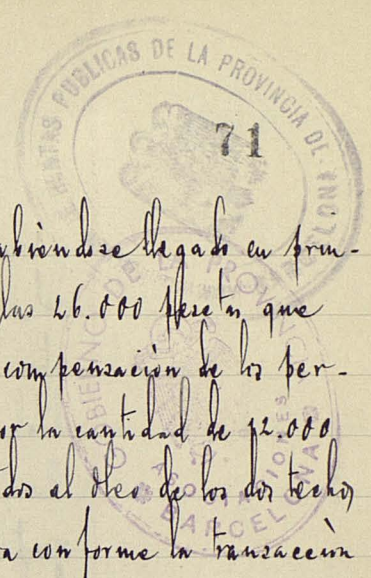 RENTAS PUBLICAS DE LA PROVINCIA DE BARCELONA
71
biendose llegado en prin-
las 26.000 pesetas que
compensación de los per-
or la cantidad de 12.000
dos al óleo de los dos techos
a conforme la transacción
GOBIERNO DE PROVINCIA
ASOCIACIONES
BARCELONA